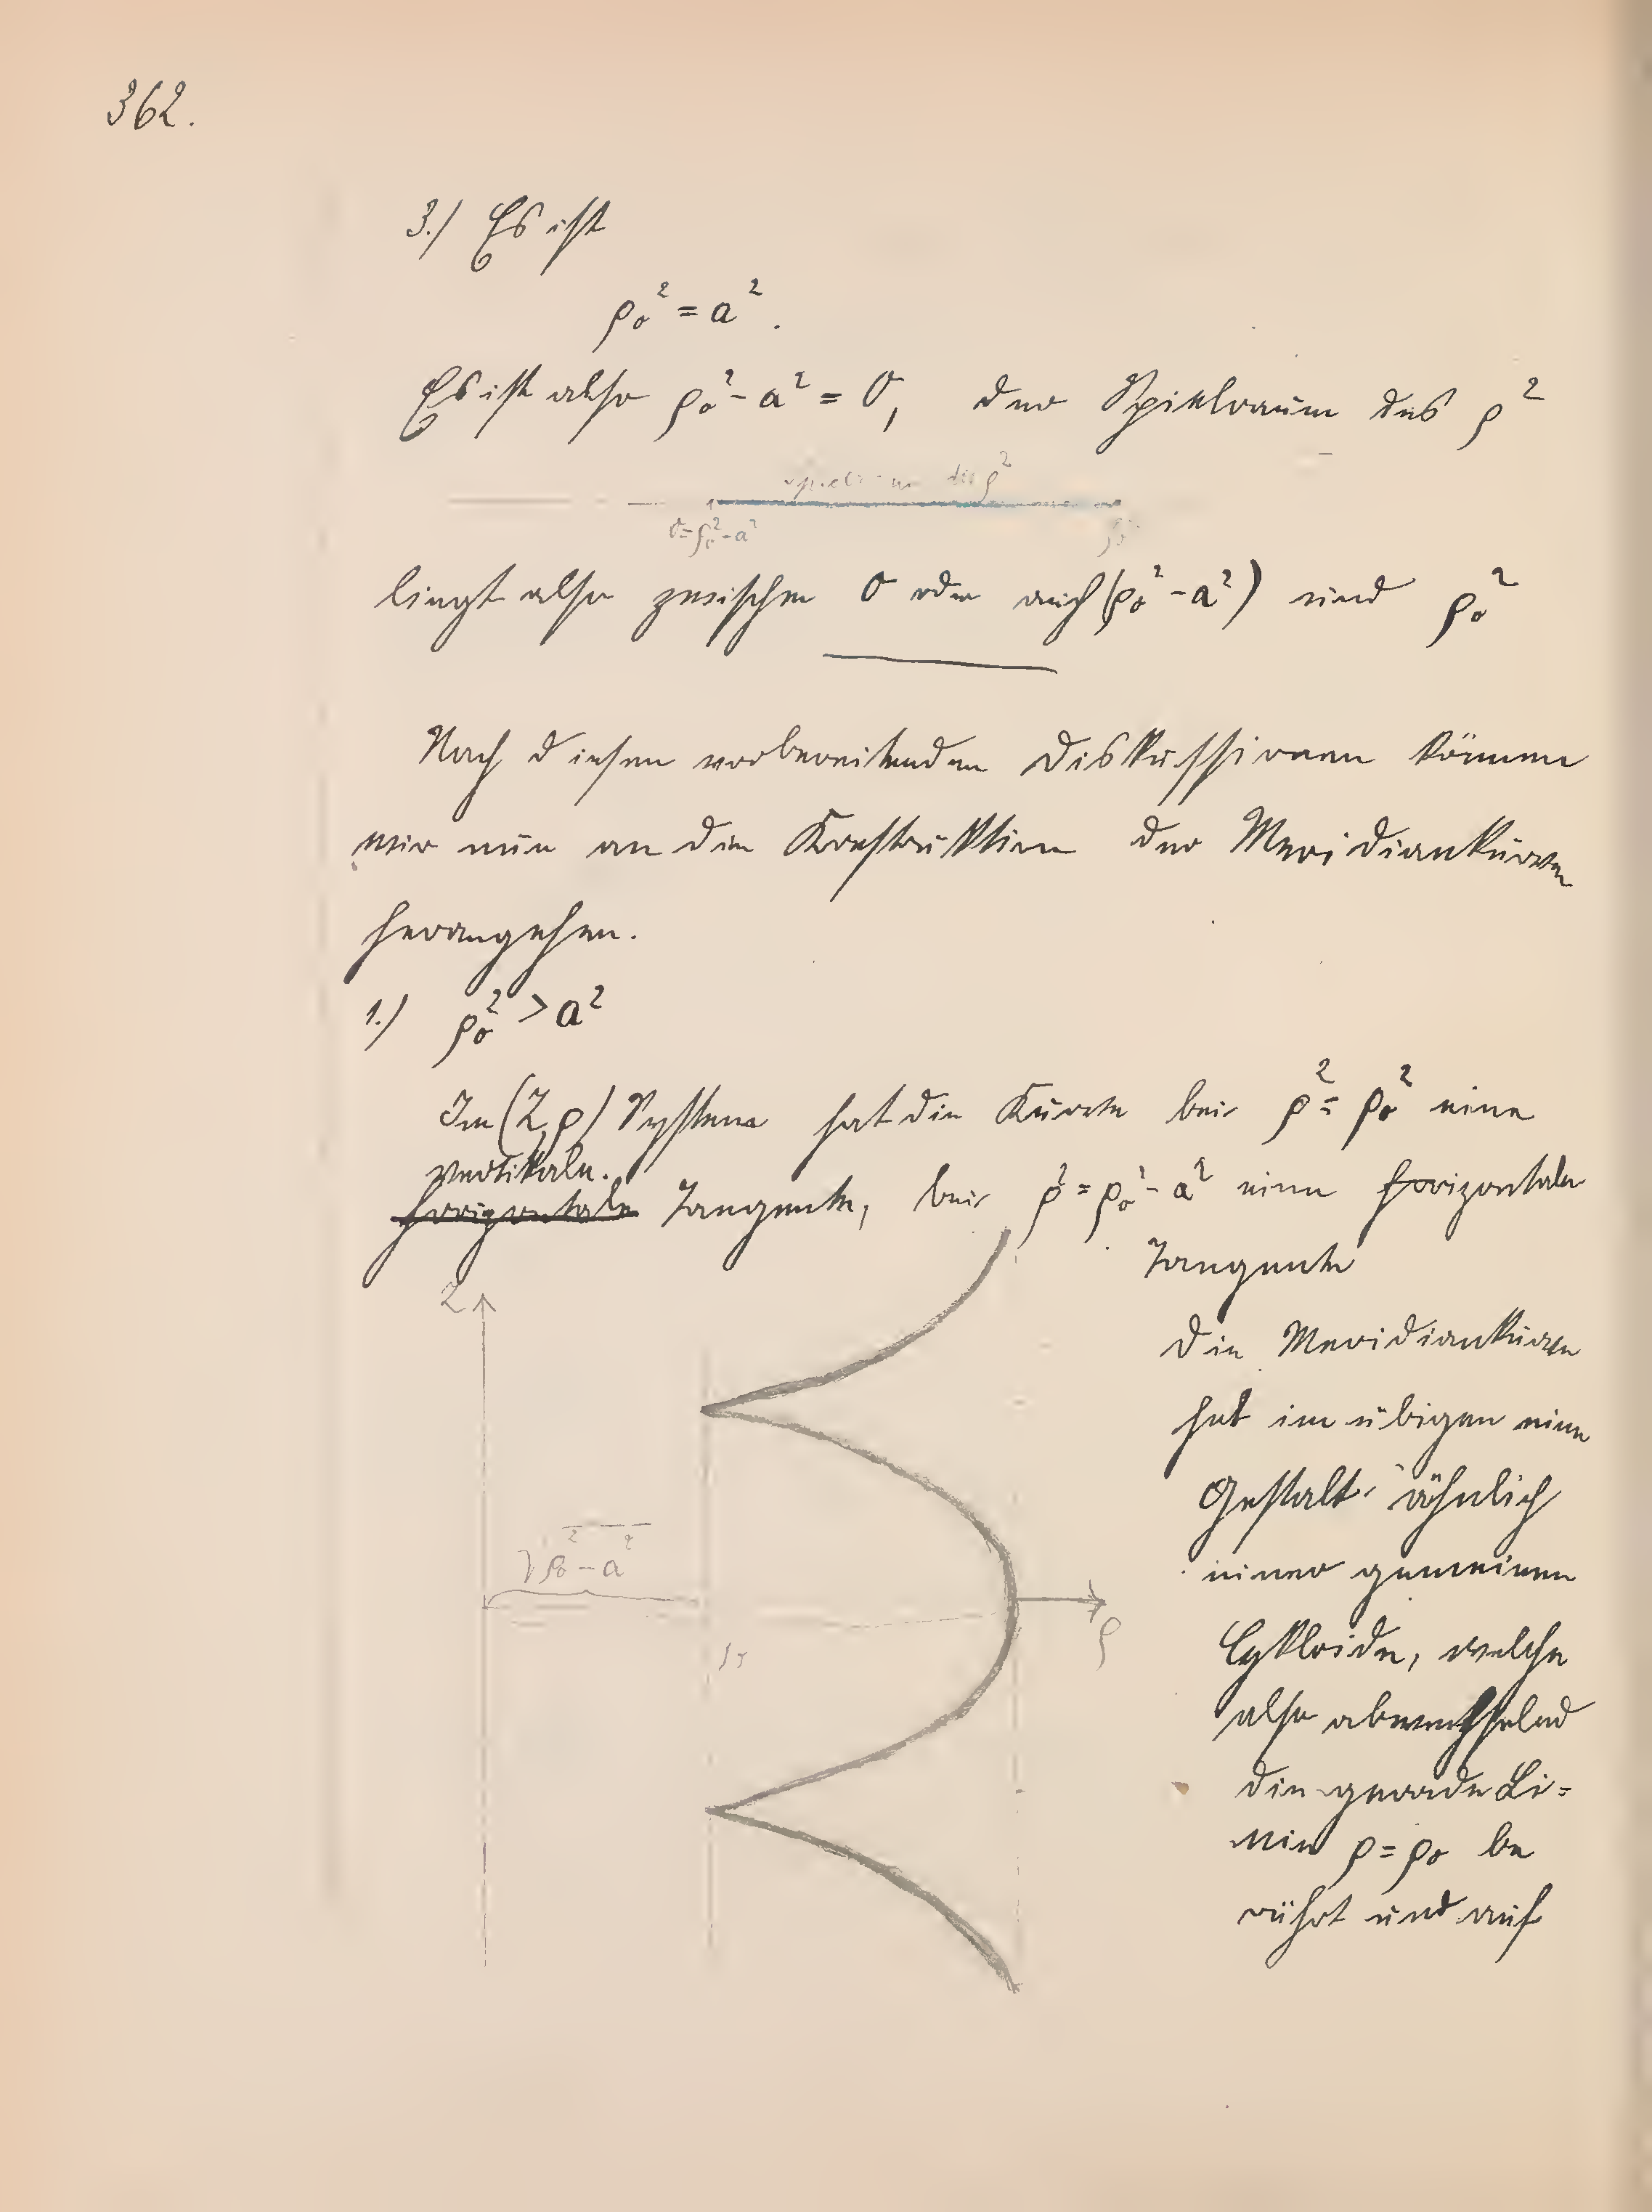 362.
3.) Es ist
ρ₀² = a².
Es ist also ρ₀² - a² = 0, der Spielraum des ρ²
Spielraum des ρ²
0 = ρ₀² - a² ρ₀²
liegt also zwischen 0 oder auch (ρ₀² - a²) und ρ₀²
Nach diesen vorbereitenden Diskussionen können
wir nun an die Konstruktion der Meridiankurven
herangehen.
1.) ρ₀² > a²
Im (Z, ρ) System hat die Kurve bei ρ² = ρ₀² eine
vertikale.
horizontale Tangente, bei ρ² = ρ₀² - a² eine horizontale
Tangente
Z
Die Meridiankurve
hat im übigen eine
Gestalt ähnlich
√ρ₀² - a²
einer gemeinen
ρ
Cykloide, welche
also abwechselnd
die gerade Li=
nie ρ = ρ₀ be
rührt und auf